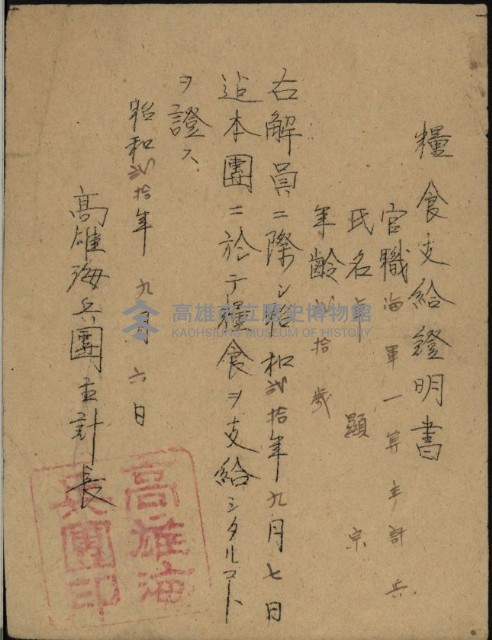 糧食支給證明書
官職 海軍一等主計兵
氏名 顯宗
年齡 貳拾歲
右解員ニ際シ昭和貳拾年九月七日
迠本團ニ於テ糧食ヲ支給シタルコト
ヲ證ス
昭和貳拾年九月六日
高雄海兵團主計長
高雄海
兵團印
高雄市立歷史博物館
KAOHSIUNG MUSEUM OF HISTORY